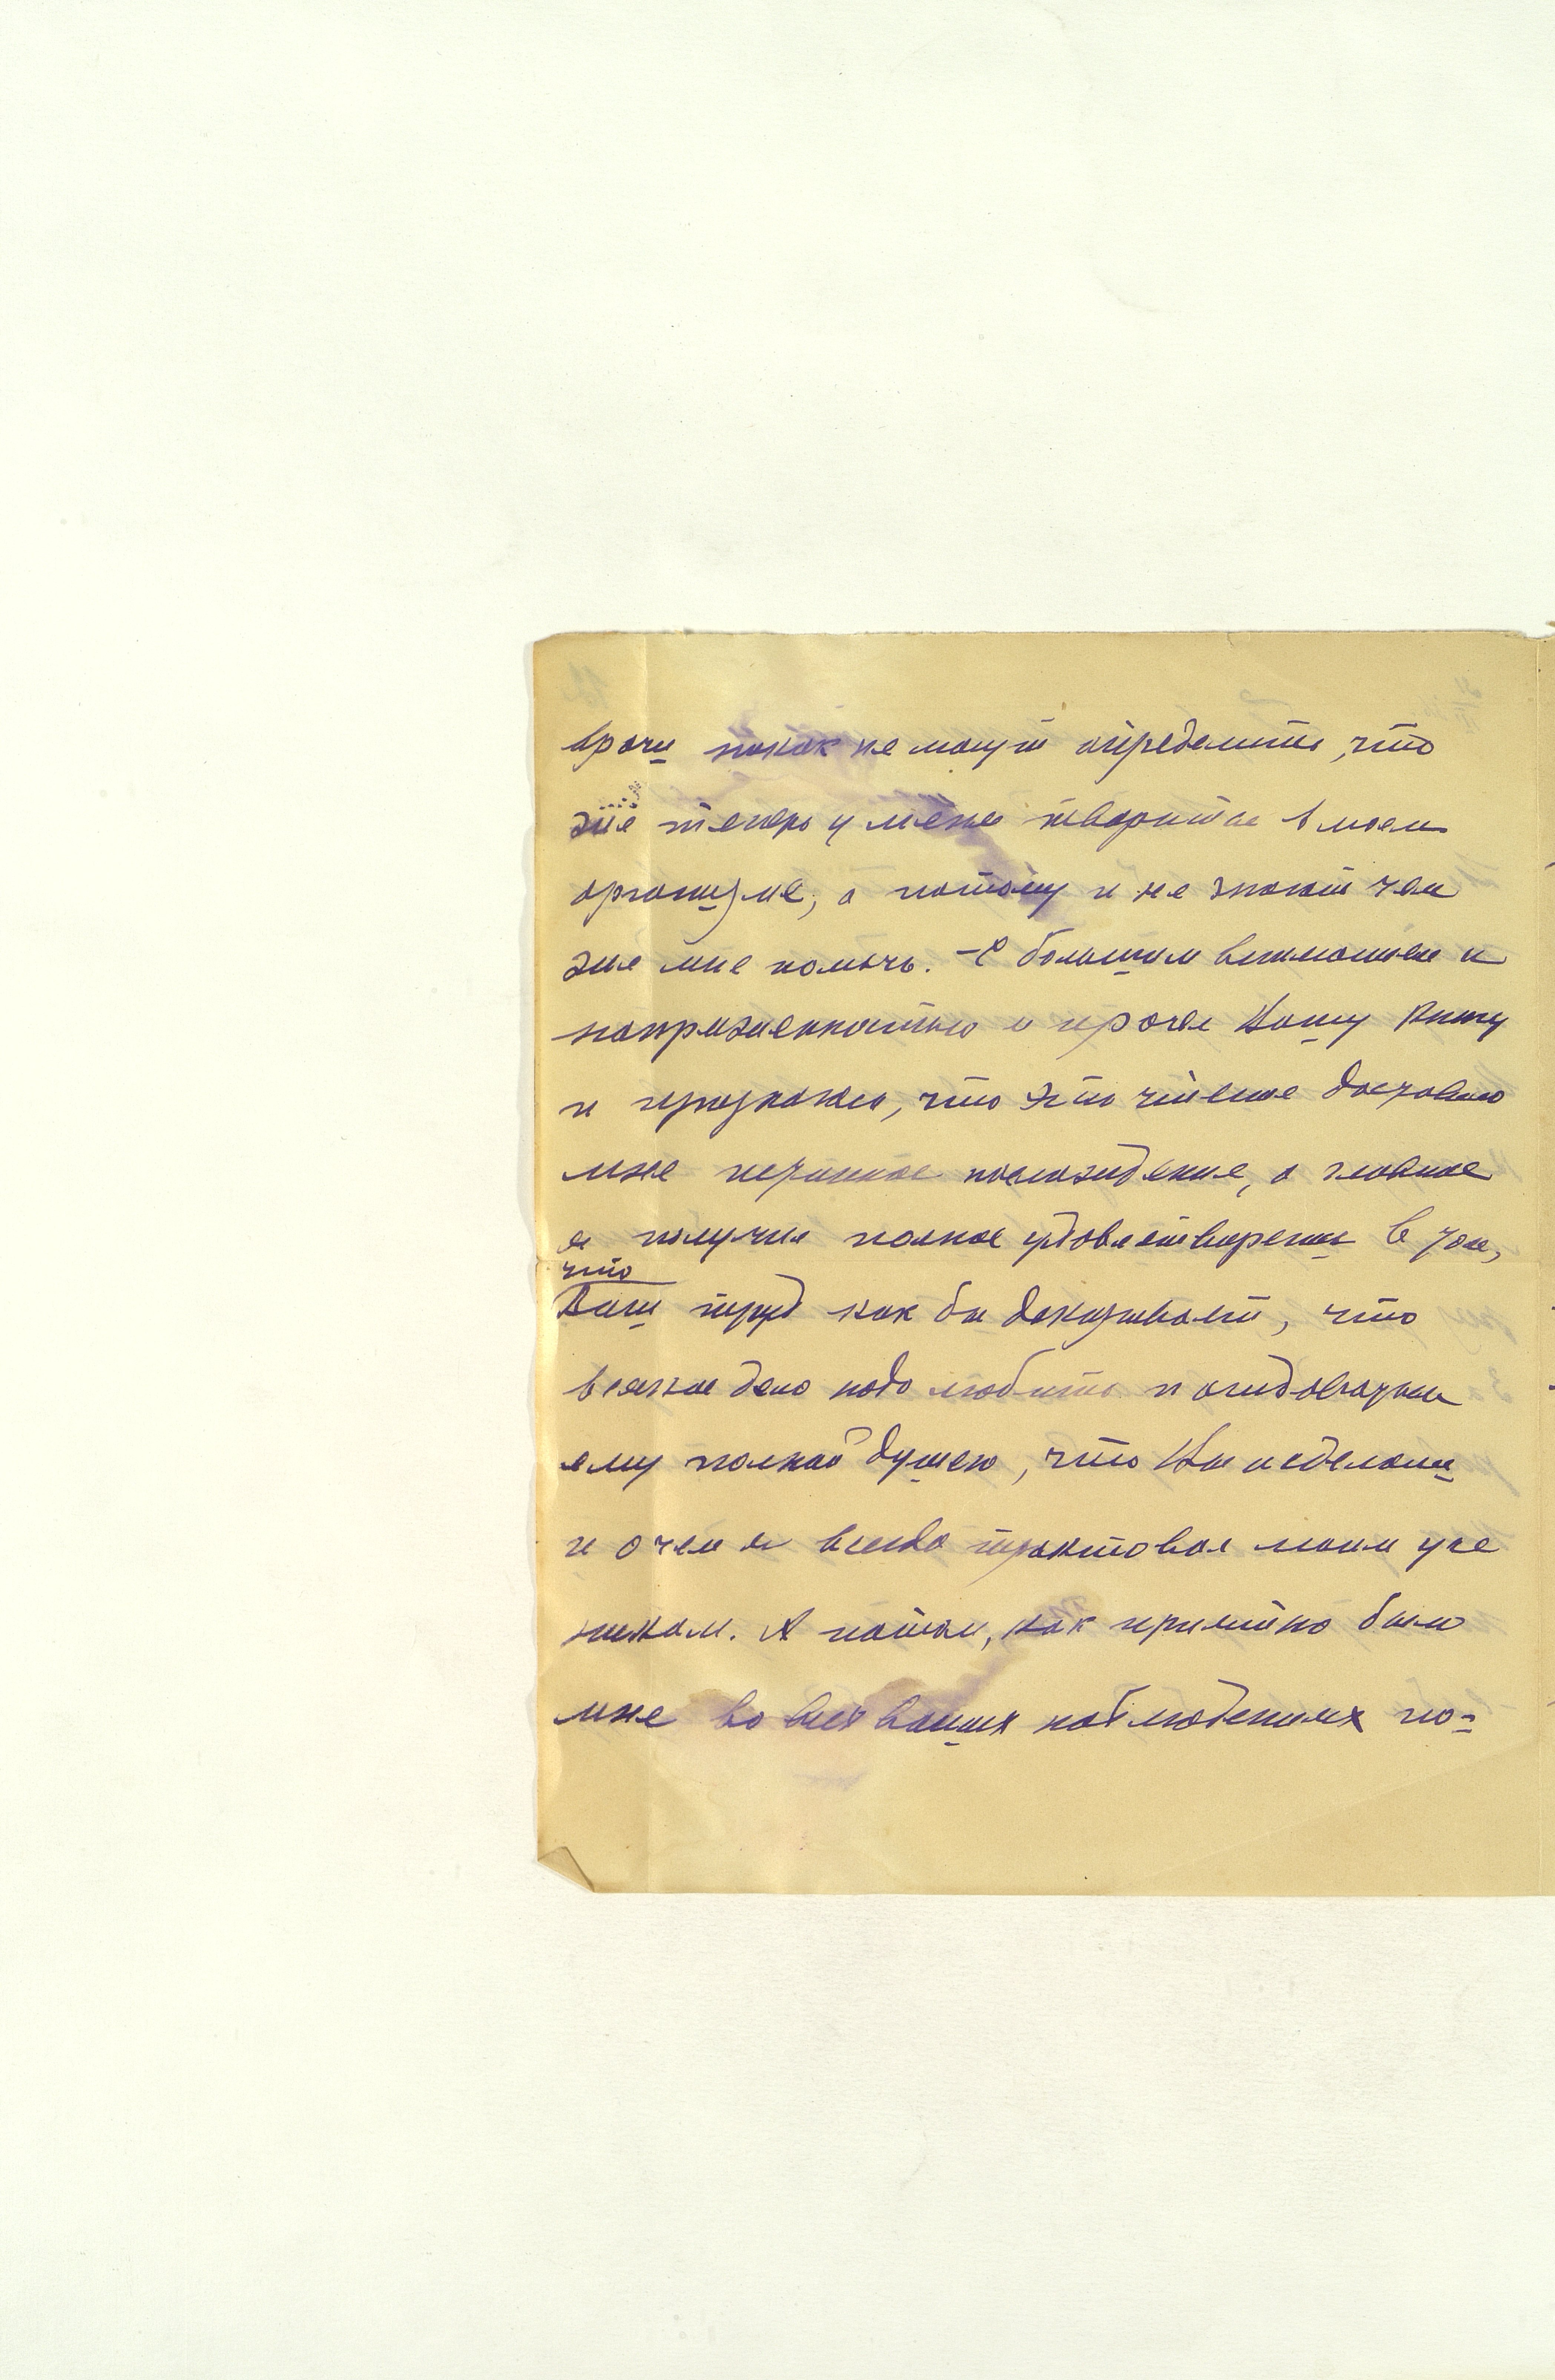 врачи никак не могут определить, что
же теперь у меня творится в моем
организме, а потому и не знают чем
же мне помочь. – С большим вниманием и
напряженностью я прочел Вашу книгу
и признаюсь, что это чтение доставило
мне истинное наслаждение, а главное
я получил полное удовлетворение в том,
что
Ваш труд как бы доказывает, что
всякое дело надо любить и отдаваться
ему полной душею, что Вы и сделали
и о чем я всегда трактовал моим уче
никам. А потом, как приятно было
мне во всех ваших наблюдениях по-